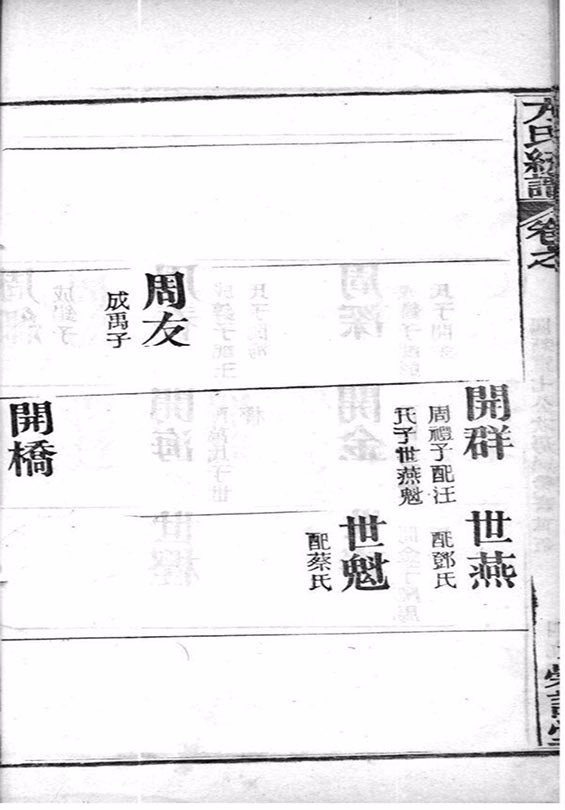 氏統譜
卷之
開群
周禮子配汪
氏子世燕魁
世燕
配鄧氏
世魁
配蔡氏
周友
成禹子
開橋